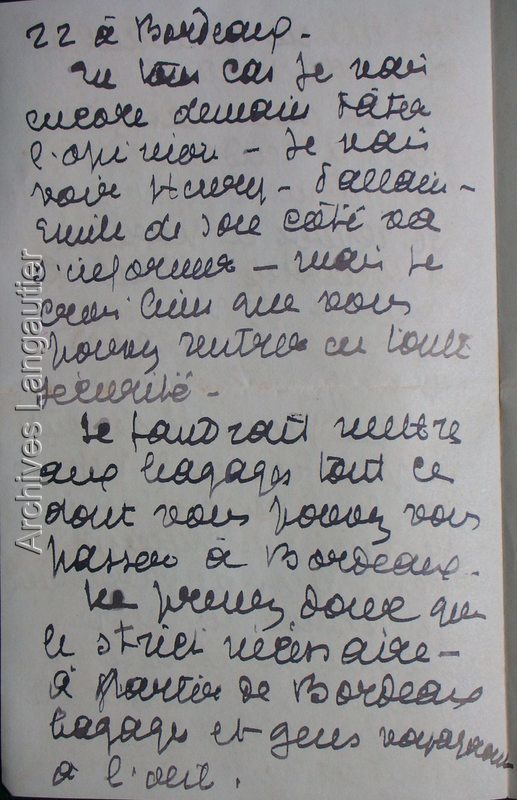 22 à Bordeaux -
En tous cas je vais
encore demain tâter
l'opinion - Je vais
voir Henry - Dallain -
Emile de son côté va
s'informer - mais je
crois bien que vous
pouvez rentrer en toute
sécurité -
Il faudrait mettre
aux bagages tout ce
dont vous pouvez vous
passer à Bordeaux.
Ne prenez donc que
le strict nécessaire -
à partir de Bordeaux
bagages et gens voyagent
à l'œil.
Archives Langautier